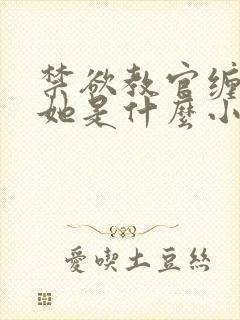 禁欲教官缠
她是什麼小
愛喫土豆絲